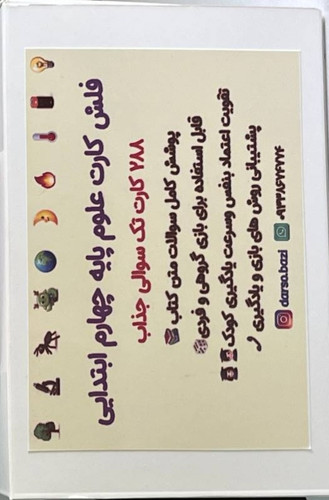 فلش کارت علوم پایه چهارم ابتدایی
۲۸۸ کارت تک سوالی جذاب
پوشش کامل سوالات متن کتاب
قابل استفاده برای بازی گروهی و فردی
تقویت اعتماد بنفس وسرعت یادگیری کودک
پشتیبانی روش های بازی و یادگیری
darso.bazi